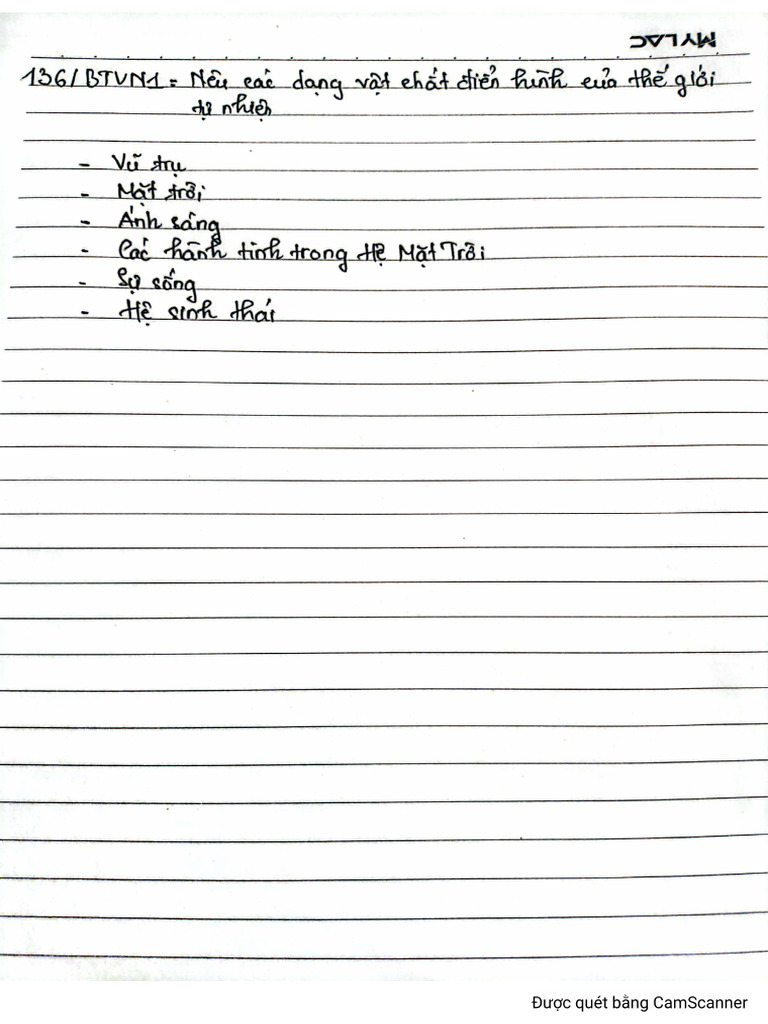 MYLAC
136/BTVN1: Nêu các dạng vật chất điển hình của thế giới
tự nhiên
- Vũ trụ
- Mặt trời
- Ánh sáng
- Các hành tinh trong Hệ Mặt Trời
- Sự sống
- Hệ sinh thái
Được quét bằng CamScanner